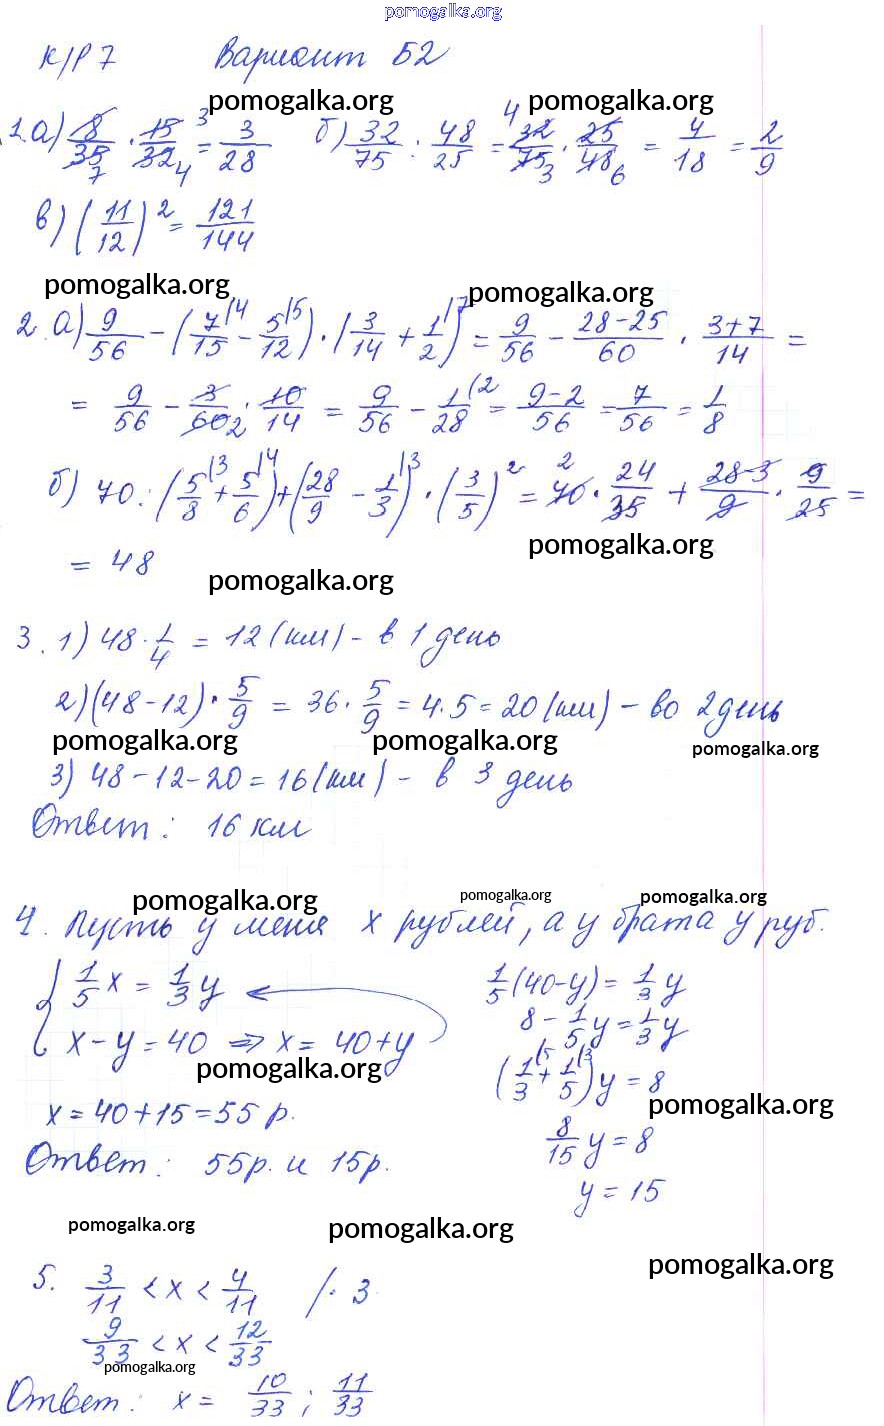 pomogalka.org
К/Р 7 Вариант Б2
pomogalka.org pomogalka.org
1. а) 8/35 7 · 15/32 3 4 = 3/28 б) 32/75 : 48/25 = 32/75 4 3 · 25/48 6 = 4/18 = 2/9
в) (11/12)² = 121/144
pomogalka.org pomogalka.org
2. а) 9/56 - (7/15 |4 - 5/12 |5) · (3/14 + 1/2 |7) = 9/56 - 28-25/60 · 3+7/14 =
= 9/56 - 3/60 2 · 10/14 = 9/56 - 1/28 |2 = 9-2/56 = 7/56 = 1/8
б) 70 : (5/8 |3 + 5/6 |4) + (28/9 - 1/3 |3) · (3/5)² = 2 70 · 24/35 + 28-3/9 · 9/25 =
pomogalka.org
= 48
pomogalka.org
3. 1) 48 · 1/4 = 12 (км) - в 1 день
2) (48-12) · 5/9 = 36 · 5/9 = 4·5 = 20 (км) - во 2 день
pomogalka.org pomogalka.org pomogalka.org
3) 48-12-20 = 16 (км) - в 3 день
Ответ: 16 км
pomogalka.org pomogalka.org pomogalka.org
4. Пусть у меня x рублей, а у брата y руб.
{ 1/5 x = 1/3 y
x - y = 40 ⇒ x = 40+y
pomogalka.org
x = 40+15 = 55 р.
Ответ: 55р. и 15р.
1/5 (40-y) = 1/3 y
8 - 1/5 y = 1/3 y
(1/3 |5 + 1/5 |3) y = 8
pomogalka.org
8/15 y = 8
y = 15
pomogalka.org pomogalka.org
pomogalka.org
5. 3/11 < x < 4/11 /· 3
9/33 < x < 12/33
pomogalka.org
Ответ: x = 10/33 ; 11/33